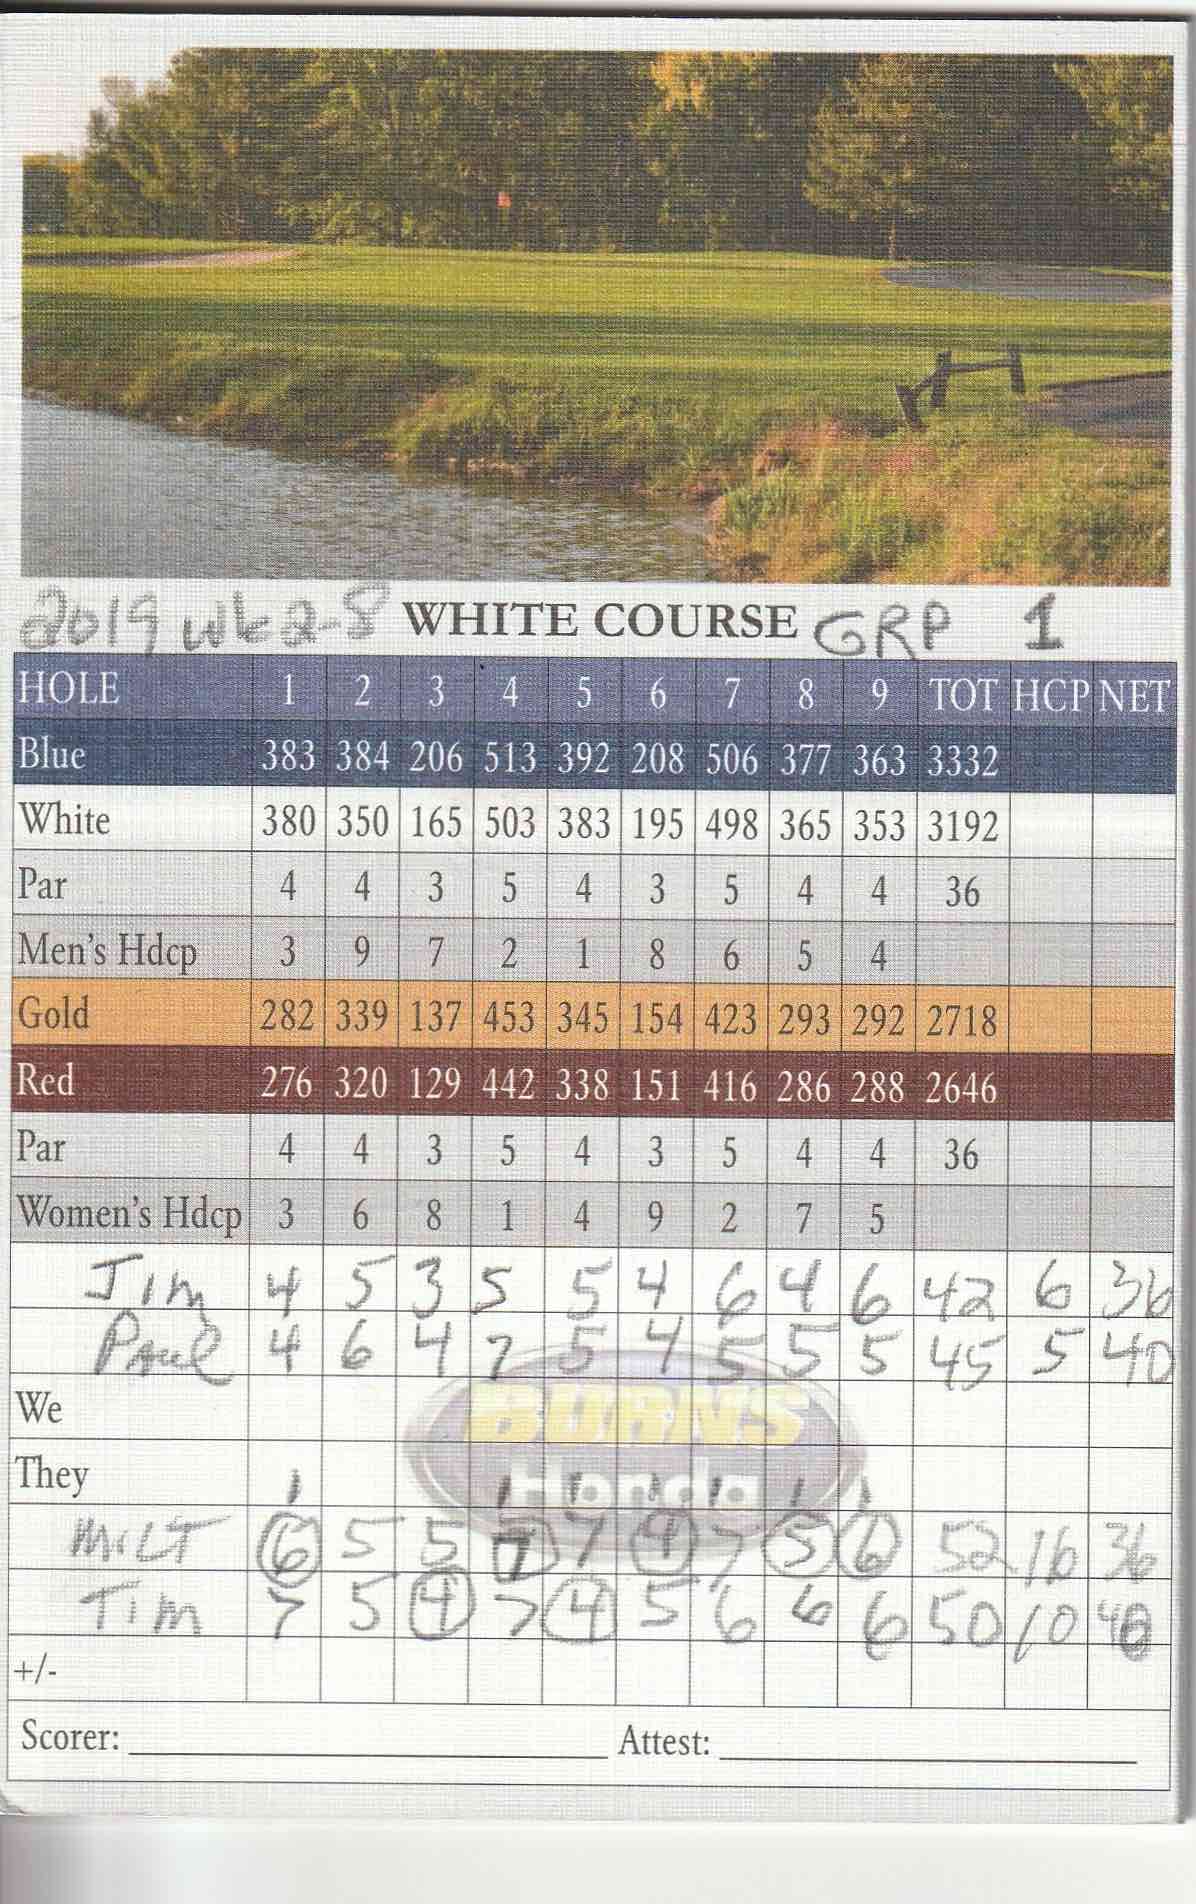 2019 wk 2-8 WHITE COURSE GRP 1
HOLE 1 2 3 4 5 6 7 8 9 TOT HCP NET
Blue 383 384 206 513 392 208 506 377 363 3332
White 380 350 165 503 383 195 498 365 353 3192
Par 4 4 3 5 4 3 5 4 4 36
Men's Hdcp 3 9 7 2 1 8 6 5 4
Gold 282 339 137 453 345 154 423 293 292 2718
Red 276 320 129 442 338 151 416 286 288 2646
Par 4 4 3 5 4 3 5 4 4 36
Women's Hdcp 3 6 8 1 4 9 2 7 5
Jim 4 5 3 5 5 4 6 4 6 42 6 36
Paul 4 6 4 7 5 4 5 5 5 45 5 40
We
BURNS
They
Honda
1 1 1 1 1 1 1
MILT 6 5 5 7 7 4 7 5 6 52 16 36
Tim 7 5 4 7 4 5 6 6 6 50 10 40
+/-
Scorer: Attest: